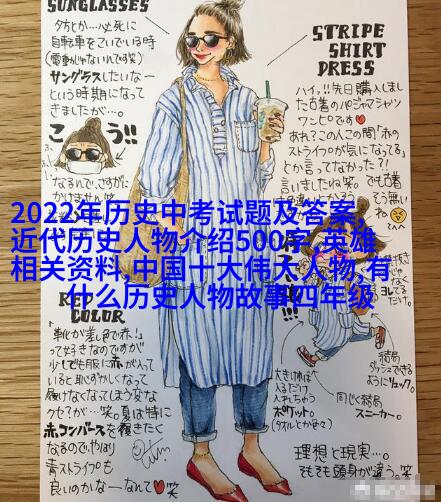 SUNGLASSES
夕方とか…必死に
自転車をこいでいる時
(電動じゃないんです笑)
サングラスしたいなー
という時期になって
きましたが…。
STRIPE
SHIRT
DRESS
ハイ!!先日購入しまし
た古着のパジャマシャツ
ワンピです♥
あれ?この人この間「赤の
ストライプが気になってる」
とか言ってなかった?!
言いましたね笑。でも古着
こう!!
2022年历史中考试题及答案,
近代历史人物介绍500字,英雄
相关资料,中国十大伟大人物,有
什么历史人物故事四年级
RED
COLOR
靴が差し色で赤!
って好きなのですが
少しでも服に赤が入って
いると恥ずかしくなって
履けなくなってしまう変な
クセが…笑。夏は特に
赤コンバースを履きたく
なるので、やはり
青ストライプも
良いのかなーなんて♥笑
大きければ
入るだけ
入れちゃう
ポケット。
(タオルとか色々)
結局
ダッシュできる
ようにリュック。
同じく結局
スニーカー。
理想と現実…。
そもそも頭身が違う。笑